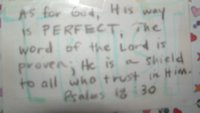 As for God, His way
is PERFECT, The
word of the Lord is
proven; He is a shield
to all who trust in Him.
Psalms 18:30